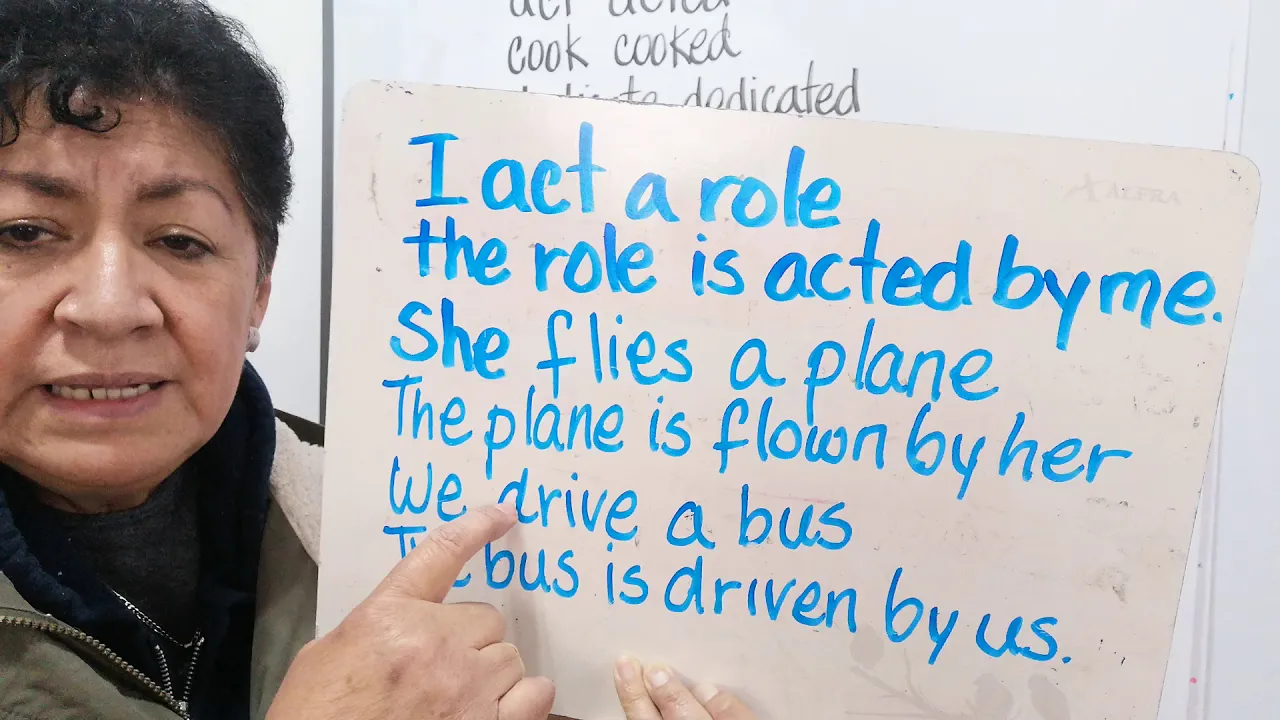 act acted
cook cooked
dedicated
ALFRA
I act a role
the role is acted by me.
She flies a plane
The plane is flown by her
We drive a bus
bus is driven by us.